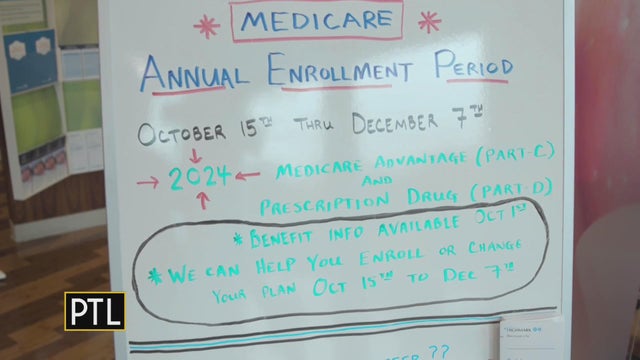 * MEDICARE *
ANNUAL ENROLLMENT PERIOD
OCTOBER 15TH THRU DECEMBER 7TH
→ 2024 ← MEDICARE ADVANTAGE (PART-C)
AND
PRESCRIPTION DRUG (PART-D)
* BENEFIT INFO AVAILABLE OCT 1ST
* WE CAN HELP YOU ENROLL OR CHANGE
YOUR PLAN OCT 15TH TO DEC 7TH
PTL
??